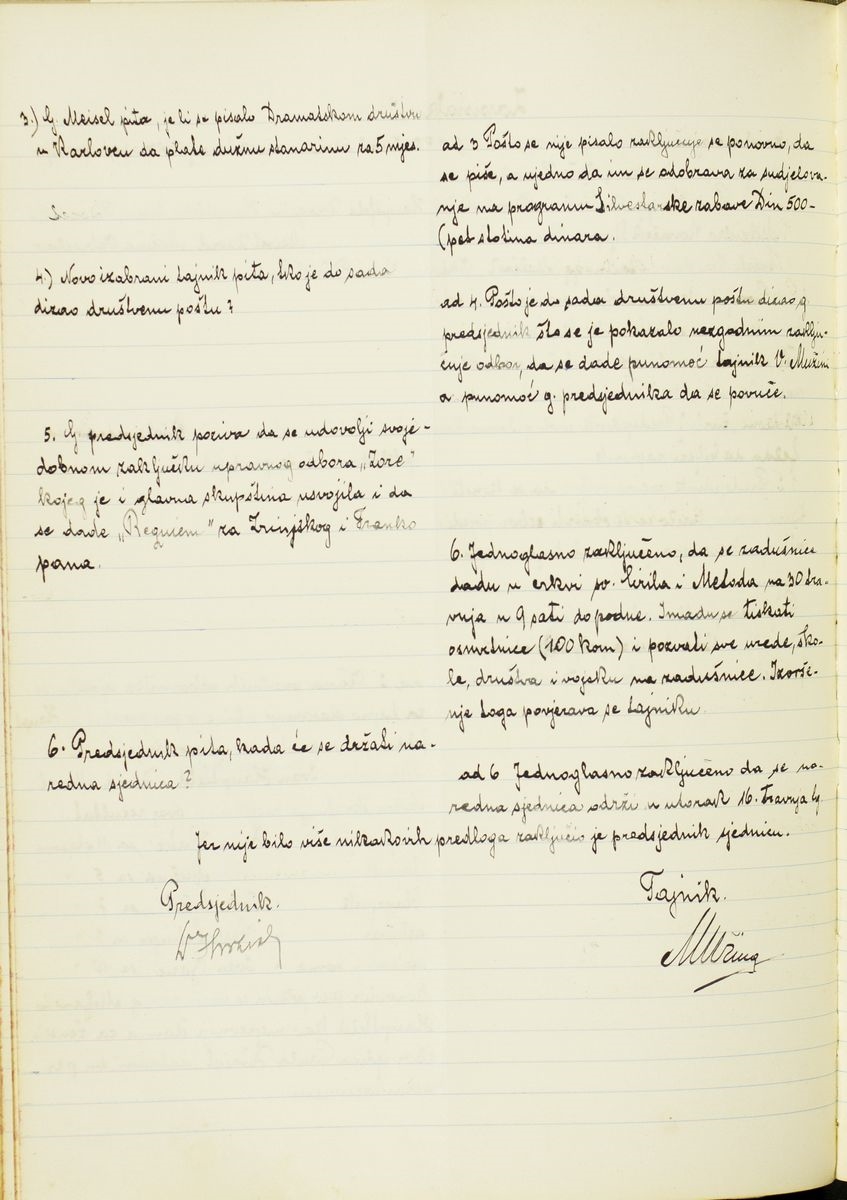 3.) G. Meisel pita, je li se pisalo Dramatskom društvu
u Karlovcu da plate dužnu stanarinu za 5 mjes.
ad 3 Pošto se nije pisalo zaključuje se ponovno, da
se piše, a ujedno da im se odobrava za sudjelova-
nje na programu Silvestarske zabave Din 500-
(pet stotina dinara.
4.) Novo izabrani tajnik pita, tko je do sada
dizao društvenu poštu?
ad 4. Pošto je do sada društvenu poštu dizao g.
predsjednik što se je pokazalo nezgodnim zaklju-
čuje odbor, da se dade punomoć tajnik V. Mužini
a punomoć g. predsjednika da se povuče.
5. G. predsjednik poziva da se udovolji svoje-
dobnom zaključku upravnog odbora „Zore"
kojeg je i glavna skupština usvojila i da
se dade „Requiem" za Zrinjskog i Franko
pana.
6. Jednoglasno zaključeno, da se zadušnice
dadu u crkvi sv. Ćirila i Metoda na 30 tra-
vnja u 9 sati do podne. Imadu se tiskati
osmrtnice (100 kom) i pozvati sve urede, ško-
le, društva i vojsku na zadušnice. Izvrše-
nje toga povjerava se tajniku.
6. Predsjednik pita, kada će se držati na-
redna sjednica?
ad 6 Jednoglasno zaključeno da se na-
redna sjednica održi u utorak 16. travnja tg.
Jer nije bilo više nikakovih predloga zaključio je predsjednik sjednicu.
Predsjednik.
Tajnik.
Dr
Mužina